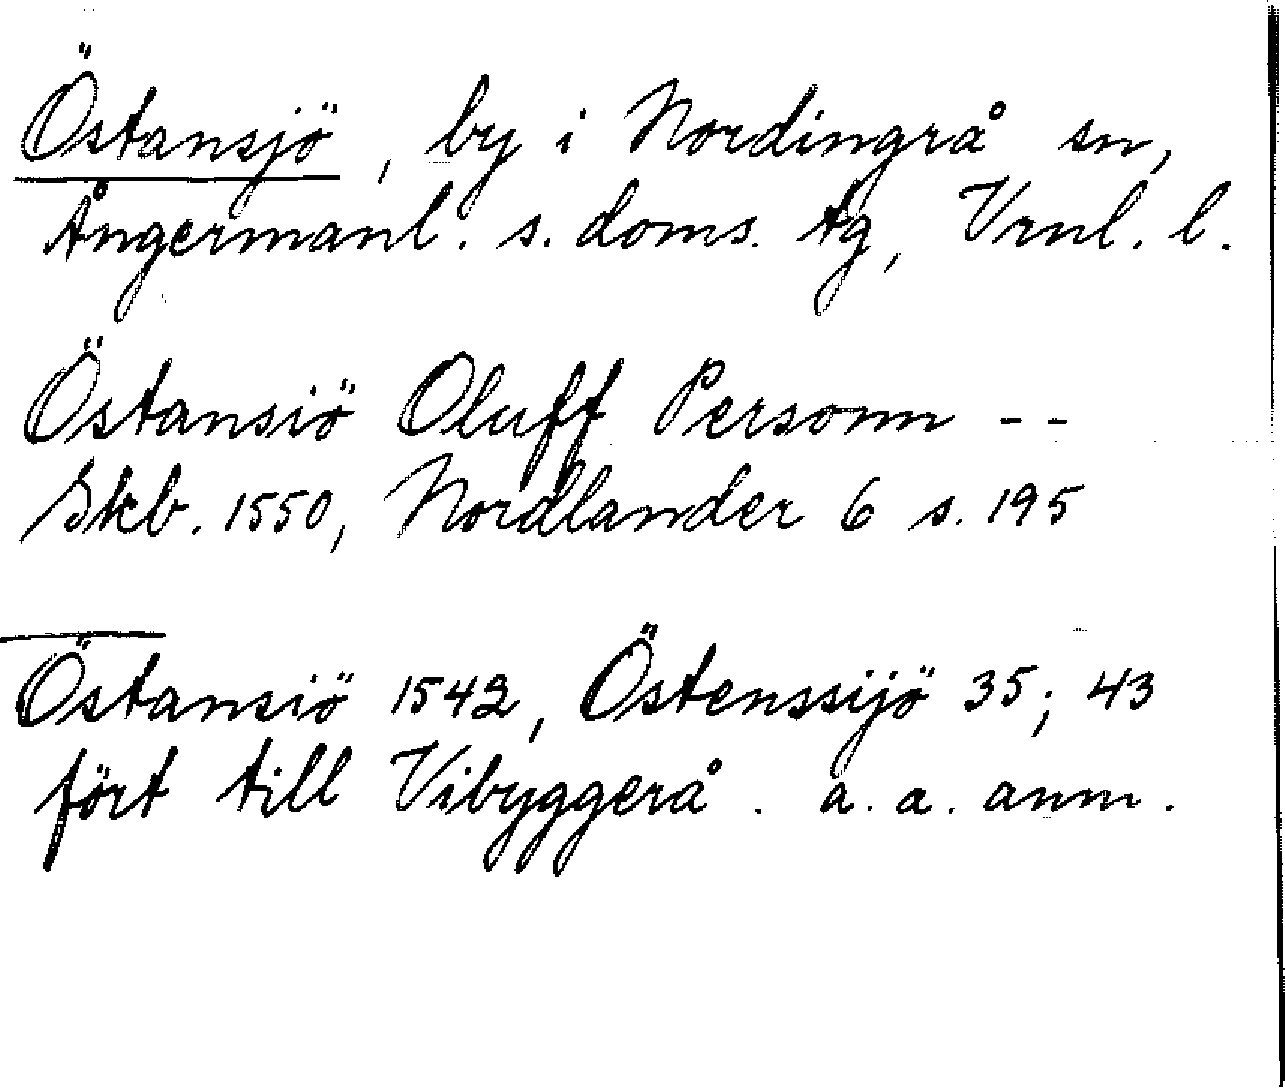 Östansjö, by i Nordingrå sn,
Ångermanl. s. doms. tg, Vrnl. l.
Östansiö Oluff Personn - -
Skb. 1550, Nordlander 6 s. 195
Östansiö 1542, Östenssijö 35; 43
fört till Vibyggerå. a. a. anm.